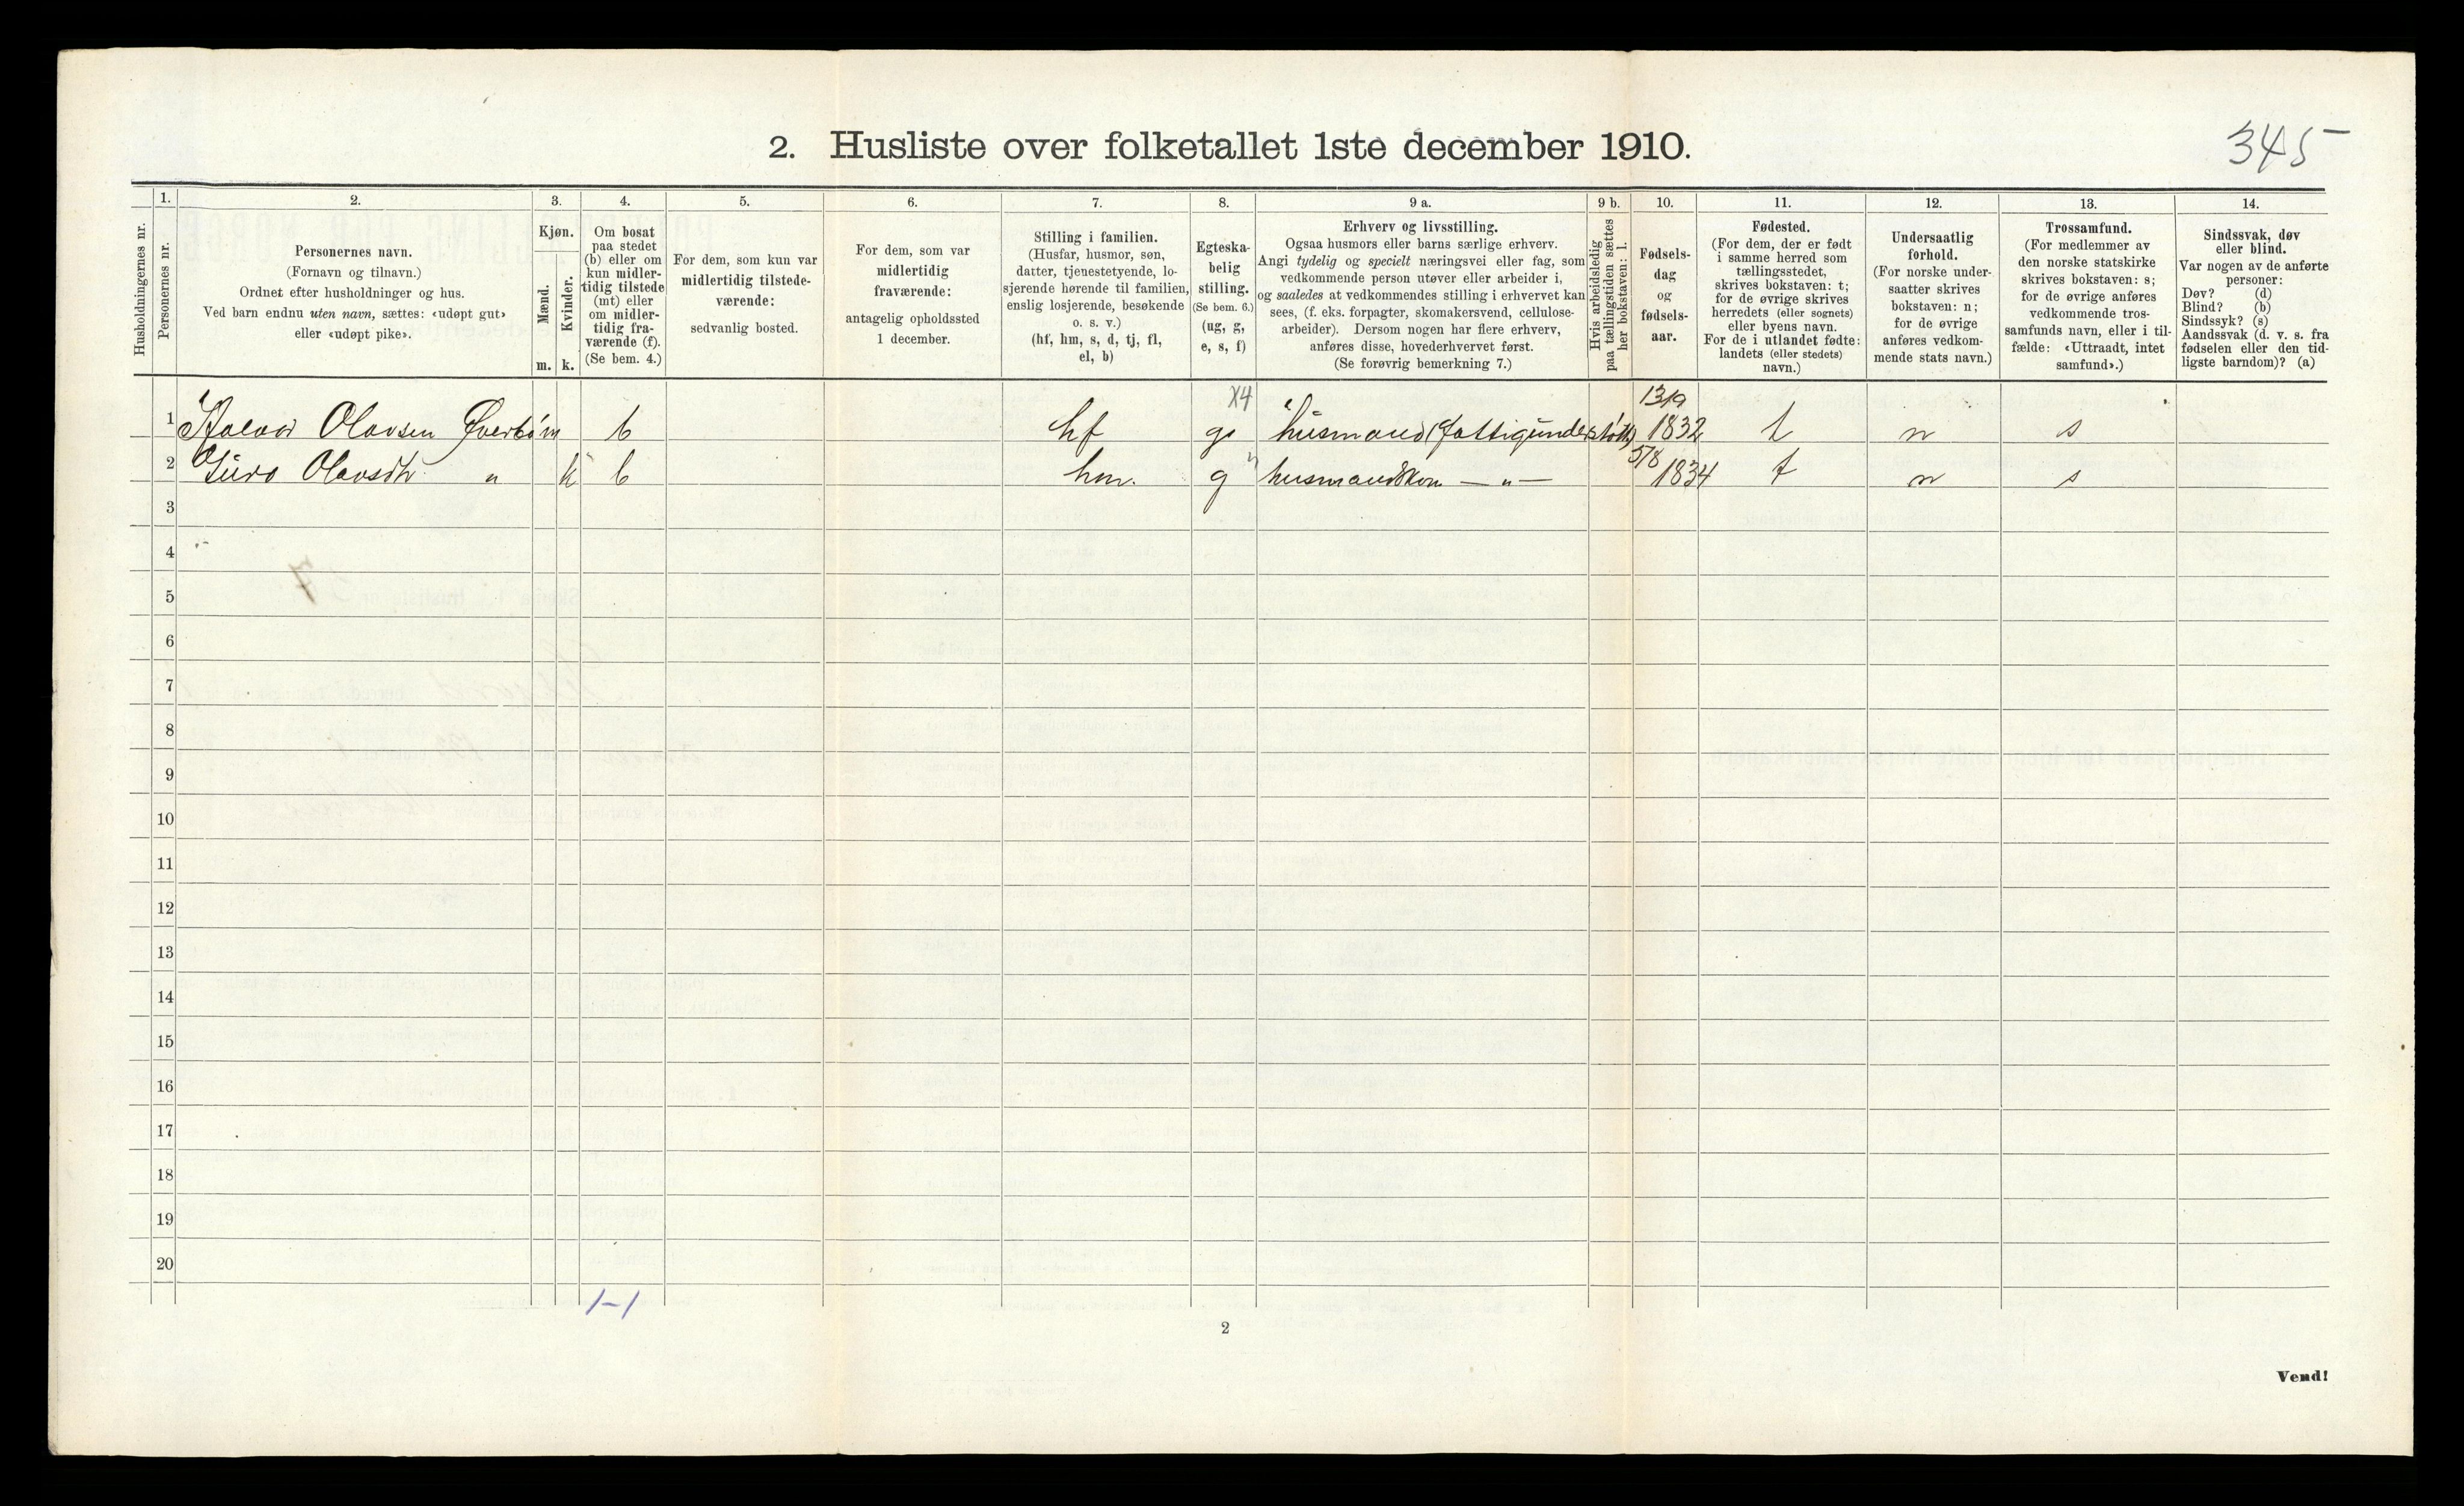 345
2. Husliste over folketallet 1ste december 1910.
Husholdningernes nr.
1.
Personernes nr.
2.
Personernes navn.
(Fornavn og tilnavn.)
Ordnet efter husholdninger og hus.
Ved barn endnu uten navn, sættes: «udøpt gut»
eller «udøpt pike».
3.
Kjøn.
Mænd.
m.
Kvinder.
k.
4.
Om bosat
paa stedet
(b) eller om
kun midler-
tidig tilstede
(mt) eller
om midler-
tidig fra-
værende (f).
(Se bem. 4.)
5.
For dem, som kun var
midlertidig tilstede-
værende:
sedvanlig bosted.
6.
For dem, som var
midlertidig
fraværende:
antagelig opholdssted
1 december.
7.
Stilling i familien.
(Husfar, husmor, søn,
datter, tjenestetyende, lo-
sjerende hørende til familien,
enslig losjerende, besøkende
o. s. v.)
(hf, hm, s, d, tj, fl,
el, b)
8.
Egteska-
belig
stilling.
(Se bem. 6.)
(ug, g,
e, s, f)
9 a.
Erhverv og livsstilling.
Ogsaa husmors eller barns særlige erhverv.
Angi tydelig og specielt næringsvei eller fag, som
vedkommende person utøver eller arbeider i,
og saaledes at vedkommendes stilling i erhvervet kan
sees, (f. eks. forpagter, skomakersvend, cellulose-
arbeider). Dersom nogen har flere erhverv,
anføres disse, hovederhvervet først.
(Se forøvrig bemerkning 7.)
9 b.
Hvis arbeidsledig
paa tællingstiden sættes
her bokstaven: l.
10.
Fødsels-
dag
og
fødsels-
aar.
11.
Fødested.
(For dem, der er født
i samme herred som
tællingsstedet,
skrives bokstaven: t;
for de øvrige skrives
herredets (eller sognets)
eller byens navn.
For de i utlandet fødte:
landets (eller stedets)
navn.)
12.
Undersaatlig
forhold.
(For norske under-
saatter skrives
bokstaven: n;
for de øvrige
anføres vedkom-
mende stats navn.)
13.
Trossamfund.
(For medlemmer av
den norske statskirke
skrives bokstaven: s;
for de øvrige anføres
vedkommende tros-
samfunds navn, eller i til-
fælde: «Uttraadt, intet
samfund».)
14.
Sindssvak, døv
eller blind.
Var nogen av de anførte
personer:
Døv? (d)
Blind? (b)
Sindssyk? (s)
Aandssvak (d. v. s. fra
fødselen eller den tid-
ligste barndom)? (a)
X4 13/9
1 Halvor Olavsen Øverbø m b hf g husmand (fattigunderstøtt) 1832 t n s
5/8
2 Guro Olavsdtr " k b hm. g husmandskone — " — 1834 t n s
3
4
5
6
7
8
9
10
11
12
13
14
15
16
17
18
19
20
1-1
2
Vend!